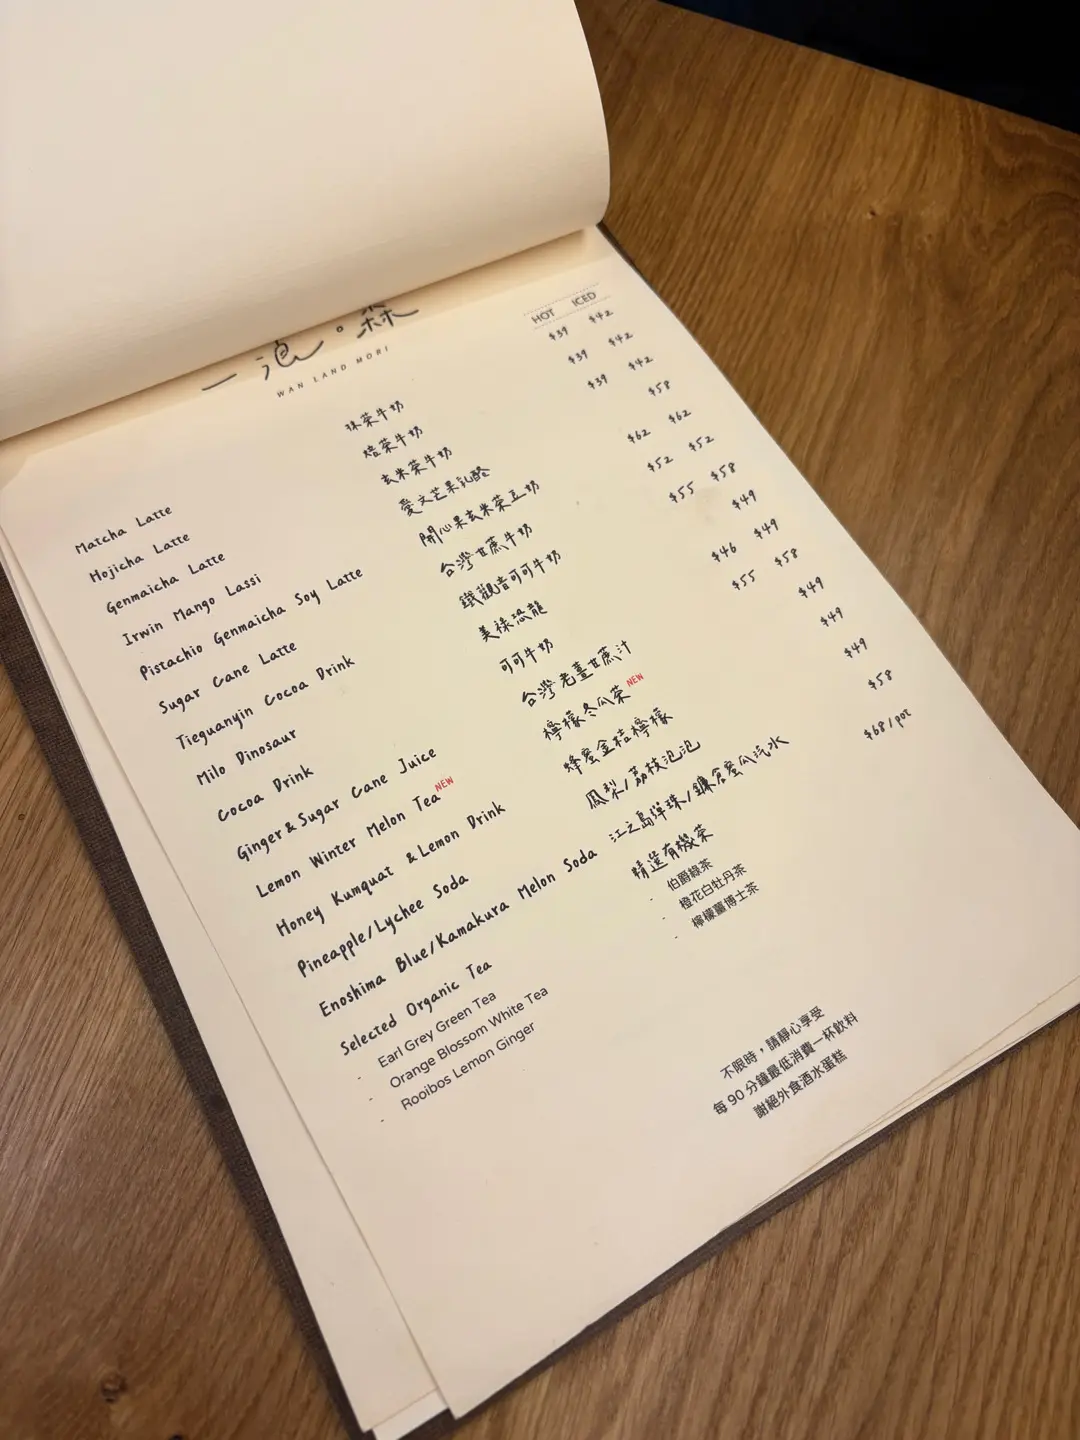 一浪。森
WAN LAND MORI
HOT ICED
Matcha Latte 抹茶牛奶 $39 $42
Hojicha Latte 焙茶牛奶 $39 $42
Genmaicha Latte 玄米茶牛奶 $39 $42
Irwin Mango Lassi 愛文芒果乳酪 $58
Pistachio Genmaicha Soy Latte 開心果玄米茶豆奶 $62 $62
Sugar Cane Latte 台灣甘蔗牛奶 $52 $52
Tieguanyin Cocoa Drink 鐵觀音可可牛奶 $55 $58
Milo Dinosaur 美祿恐龍 $49
Cocoa Drink 可可牛奶 $46 $49
Ginger & Sugar Cane Juice 台灣老薑甘蔗汁 $55 $58
Lemon Winter Melon Tea NEW 檸檬冬瓜茶 NEW $49
Honey Kumquat & Lemon Drink 蜂蜜金桔檸檬 $49
Pineapple/Lychee Soda 鳳梨/荔枝泡泡 $49
Enoshima Blue/Kamakura Melon Soda 江之島彈珠/鎌倉蜜瓜汽水 $58
Selected Organic Tea 精選有機茶 $68/pot
- Earl Grey Green Tea - 伯爵綠茶
- Orange Blossom White Tea - 橙花白牡丹茶
- Rooibos Lemon Ginger - 檸檬薑博士茶
不限時，請靜心享受
每 90 分鐘最低消費一杯飲料
謝絕外食酒水蛋糕